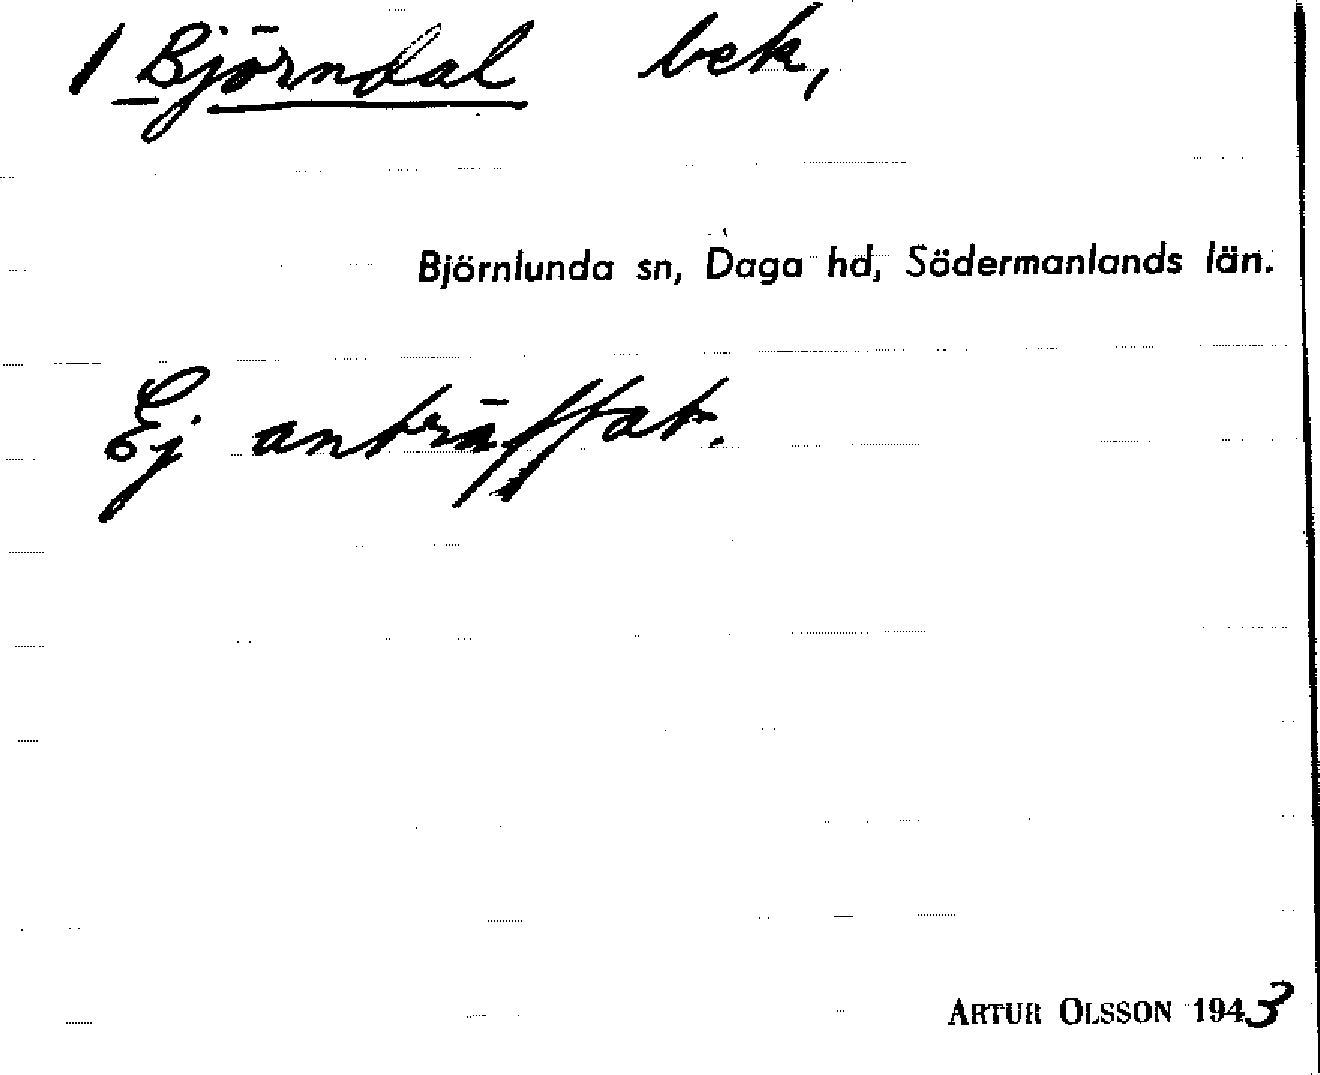 1 Björndal bek,
Björnlunda sn, Daga hd, Södermanlands län.
Ej anträffat.
ARTUR OLSSON 1943